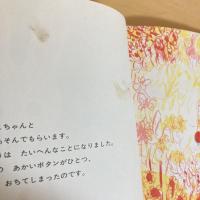 こちゃんと
そんでもらいます。
は たいへんなことになりました。
あかいボタンがひとつ、
おちてしまったのです。